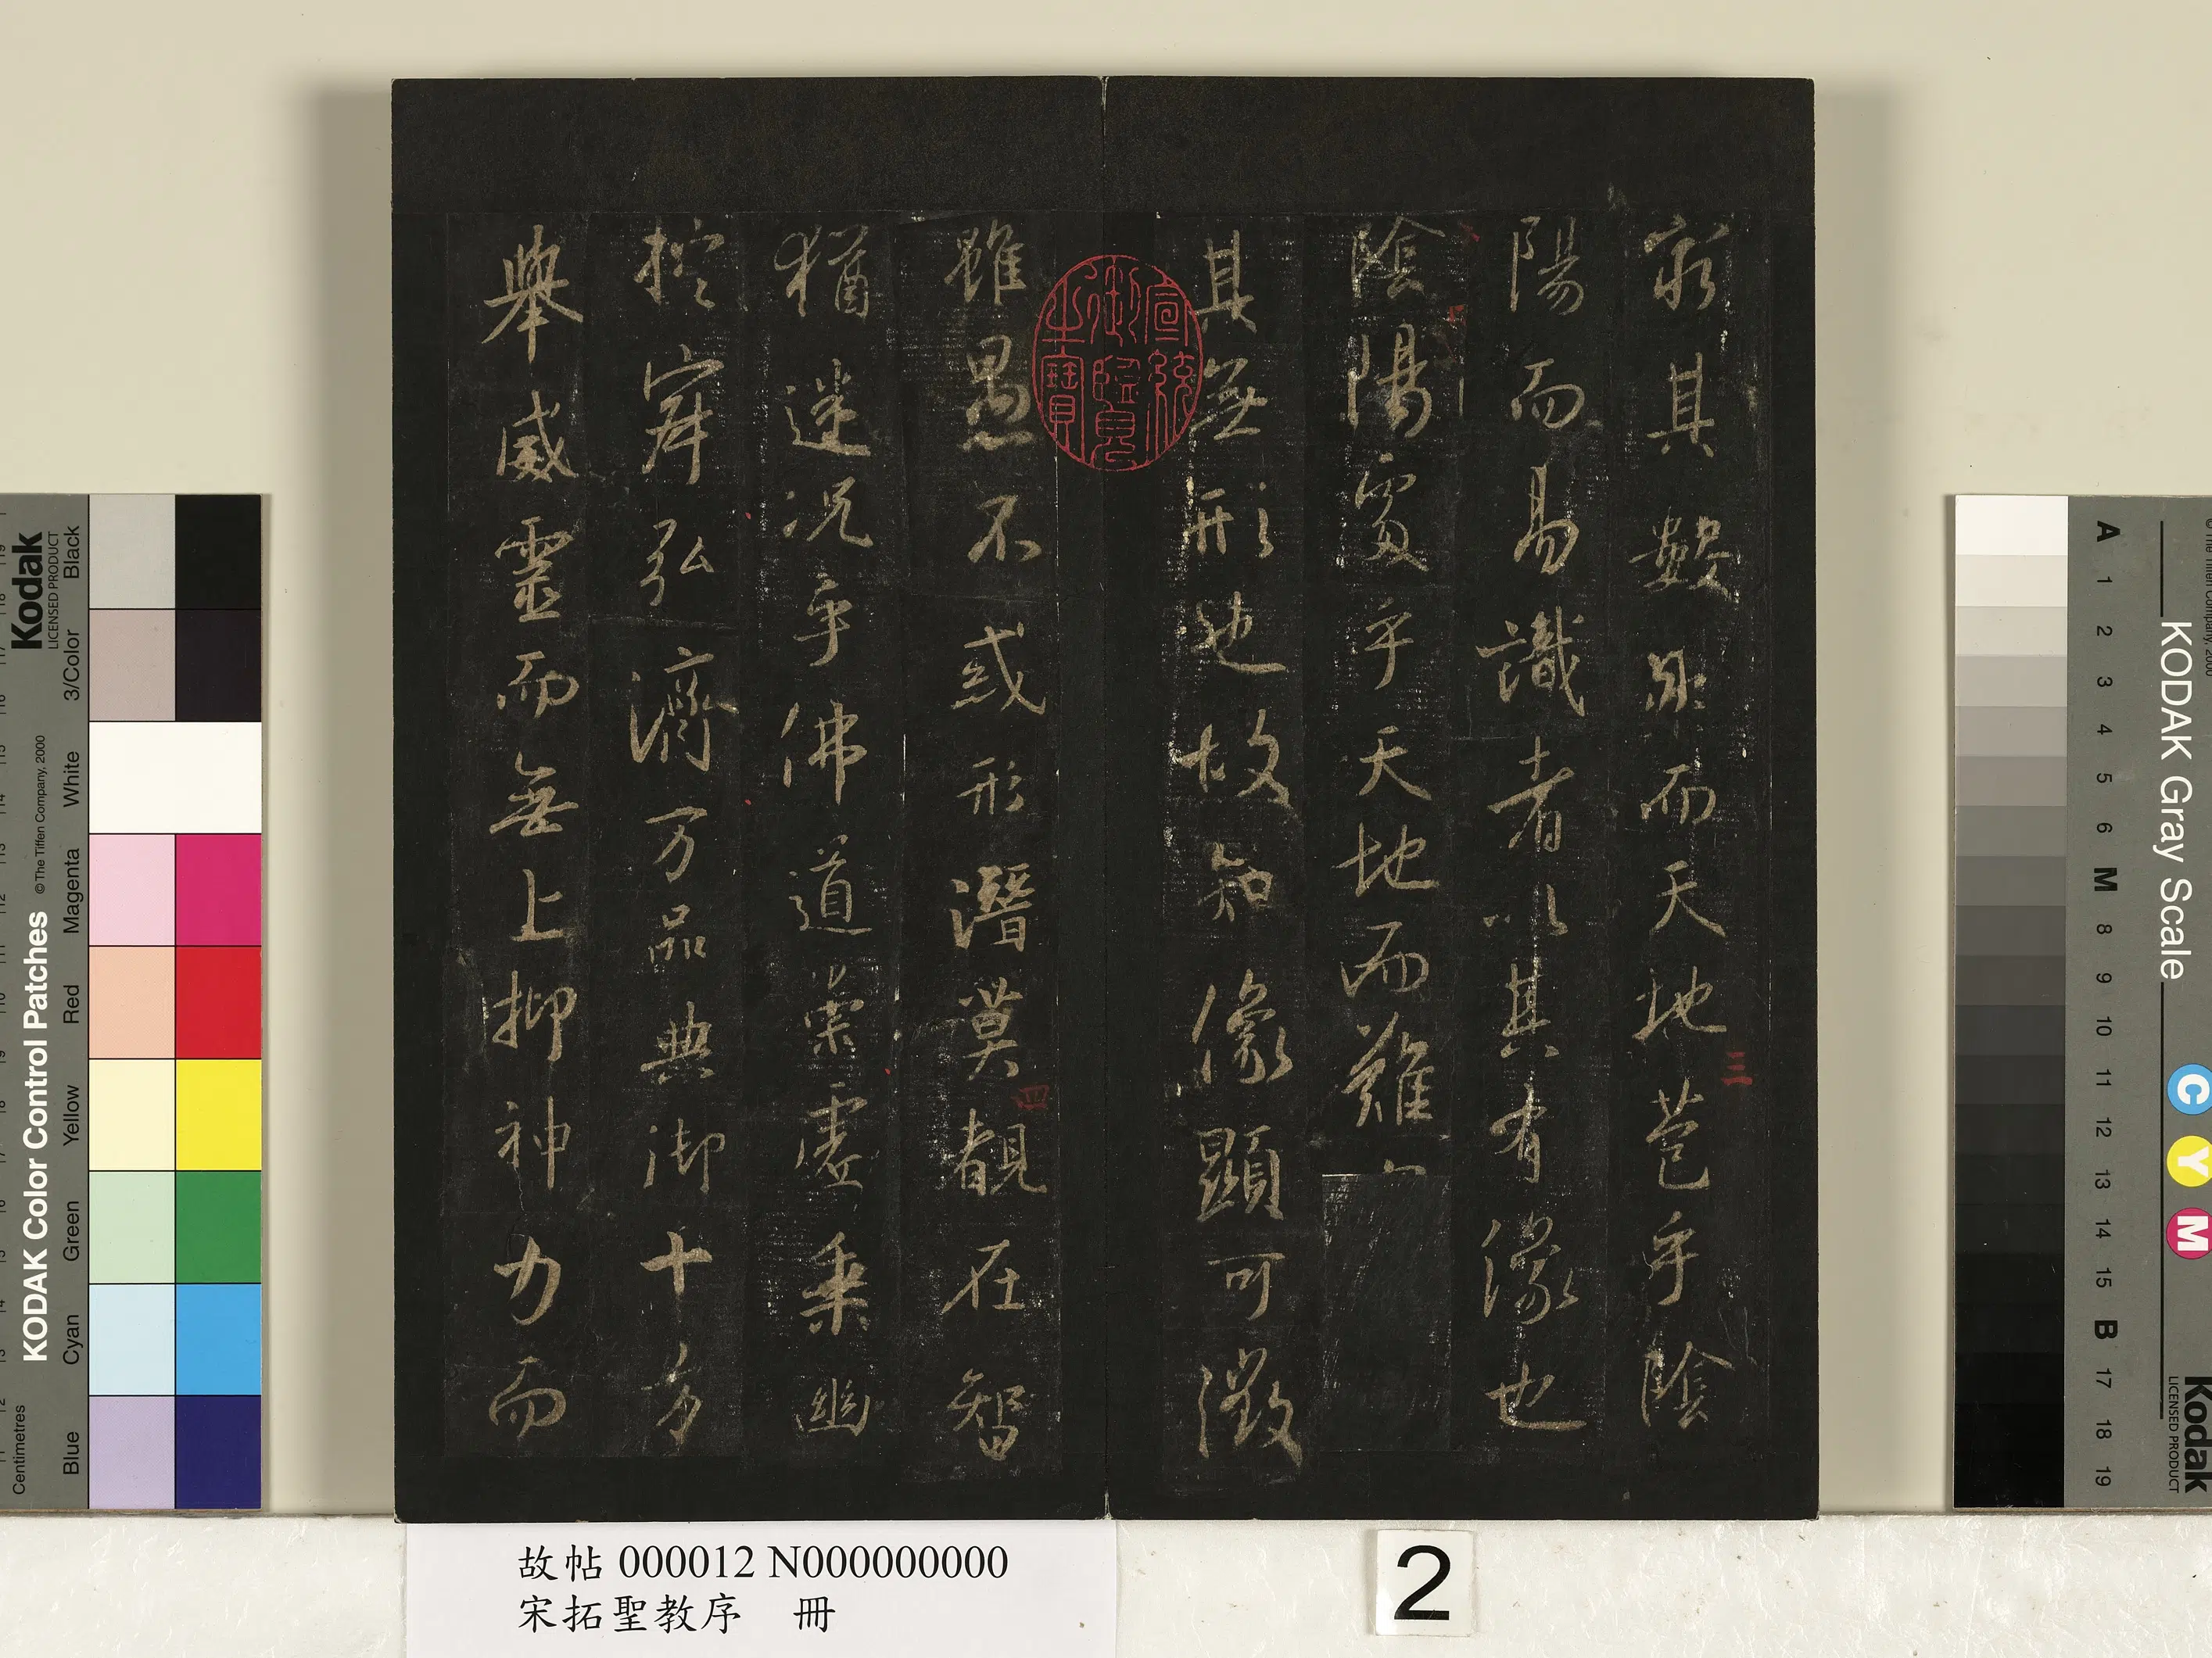 窮其數然而天地苞乎陰
陽而易識者以其有像也
陰陽處乎天地而難
其無形也故知像顯可徵
雖愚不惑形潛莫覩在智
猶迷況乎佛道崇虛乘幽
控寂弘濟万品典御十方
舉威靈而無上抑神力而
宣統御覽之寶
三
四
故帖 000012 N000000000
宋拓聖教序 冊
2
KODAK Color Control Patches
© The Tiffen Company, 2000
Kodak
LICENSED PRODUCT
Centimetres
Blue
Cyan
Green
Yellow
Red
Magenta
White
3/Color
Black
KODAK Gray Scale
Kodak
LICENSED PRODUCT
C
Y
M
A
1
2
3
4
5
6
M
8
9
10
11
12
13
14
15
B
17
18
19